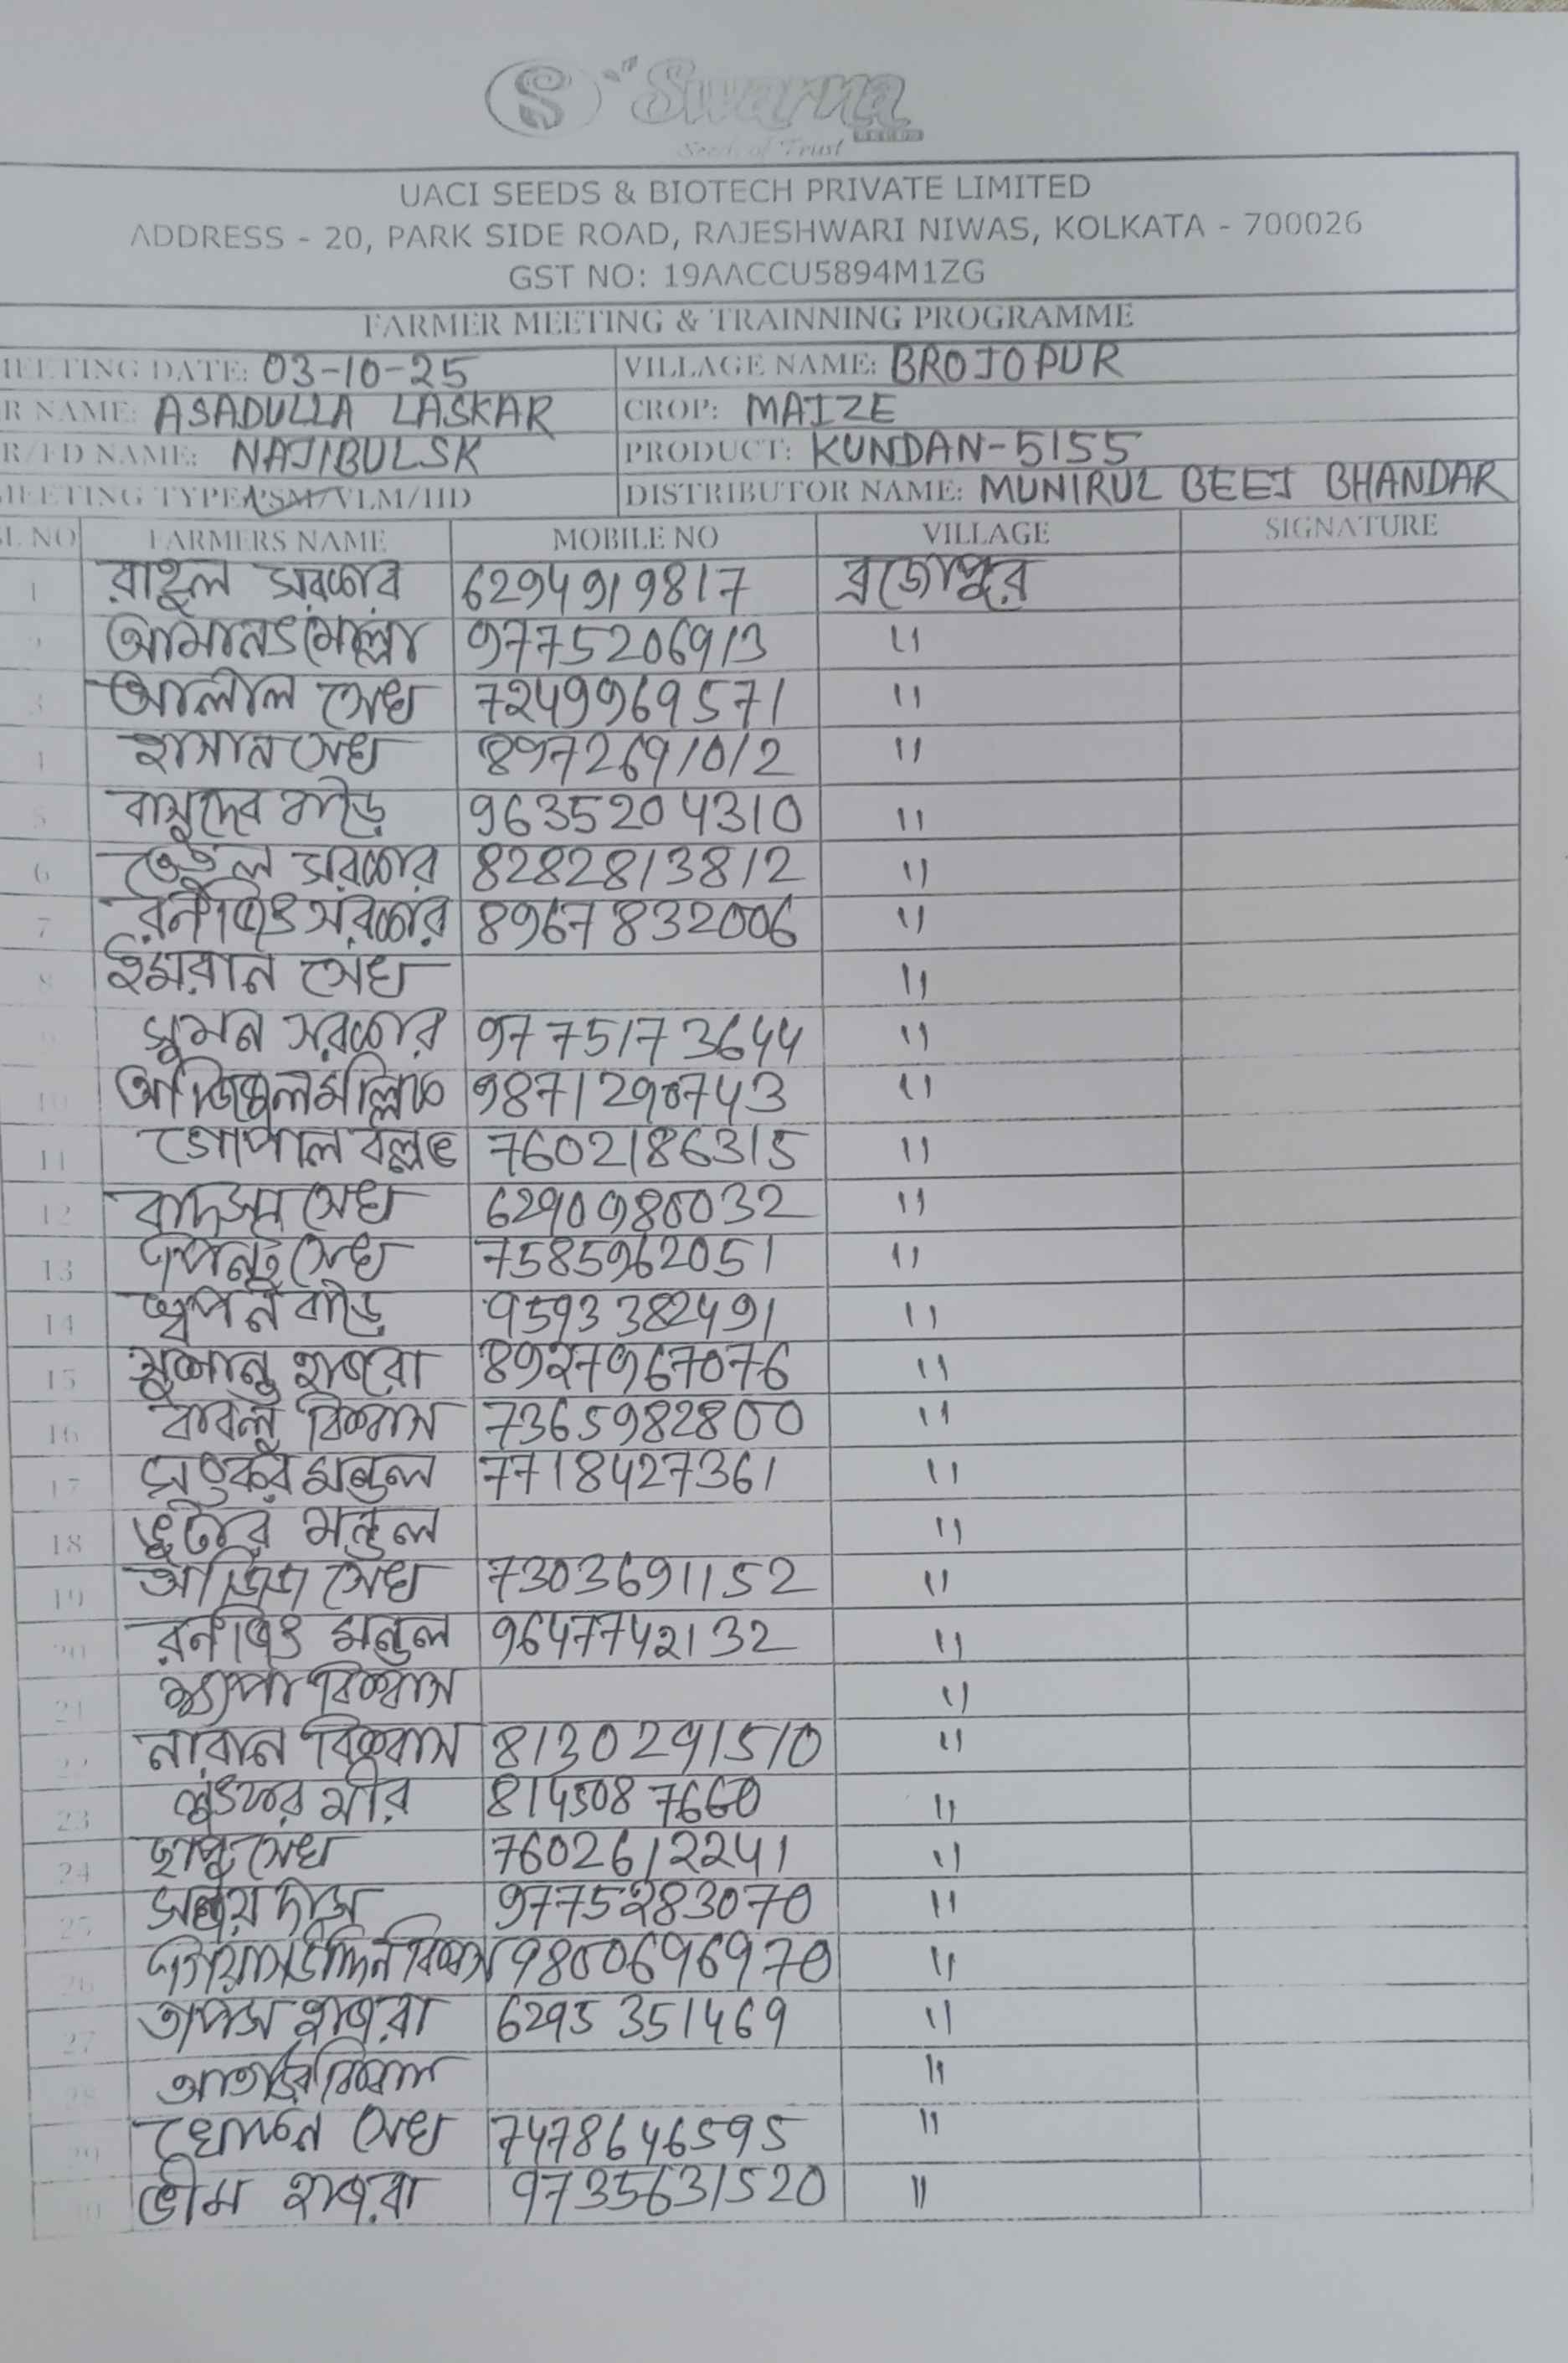 S Swarna
SEEDS
Seed of Trust
UACI SEEDS & BIOTECH PRIVATE LIMITED
ADDRESS - 20, PARK SIDE ROAD, RAJESHWARI NIWAS, KOLKATA - 700026
GST NO: 19AACCU5894M1ZG
FARMER MEETING & TRAINNING PROGRAMME
MEETING DATE: 03-10-25 VILLAGE NAME: BROJOPUR
R NAME: ASADULLA LASKAR CROP: MAIZE
R/FD NAME: NAJIBULSK PRODUCT: KUNDAN-5155
MEETING TYPE: PSM/VLM/HD DISTRIBUTOR NAME: MUNIRUL BEEJ BHANDAR
SL NO FARMERS NAME MOBILE NO VILLAGE SIGNATURE
1 রাহুল সরকার 6294919817 ব্রজোপুর
2 আমানত মোল্লা 9775206913 "
3 আলীল সেখ 7249969571 "
4 হাসান সেখ 8972691012 "
5 বাসুদেব বাড়ৈ 9635204310 "
6 সরকার 8282813812 "
7 রনজিৎ সরকার 8967832006 "
8 ইমরান সেখ "
9 সুমন সরকার 9775173644 "
10 মল্লিক 9871290743 "
11 গোপাল বল্লভ 7602186315 "
12 সেখ 6290980032 "
13 সেখ 7585962051 "
14 স্বপন বাড়ৈ 9593382491 "
15 সুশান্ত হাজরা 8927967076 "
16 বাবলু বিশ্বাস 7365982800 "
17 মন্ডল 7718427361 "
18 মন্ডল "
19 আজিজ সেখ 7303691152 "
20 রনজিৎ মন্ডল 9647742132 "
21 ক্ষ্যাপা বিশ্বাস "
22 নারান বিশ্বাস 8130291510 "
23 লুৎফর মীর 8145087660 "
24 সেখ 7602612241 "
25 দাস 9775283070 "
26 গিয়াসউদ্দিন বিশ্বাস 9800696970 "
27 তাপস হাজরা 6295351469 "
28 বিশ্বাস "
29 খোকন সেখ 7478646595 "
30 ভীম হাজরা 9735631520 "